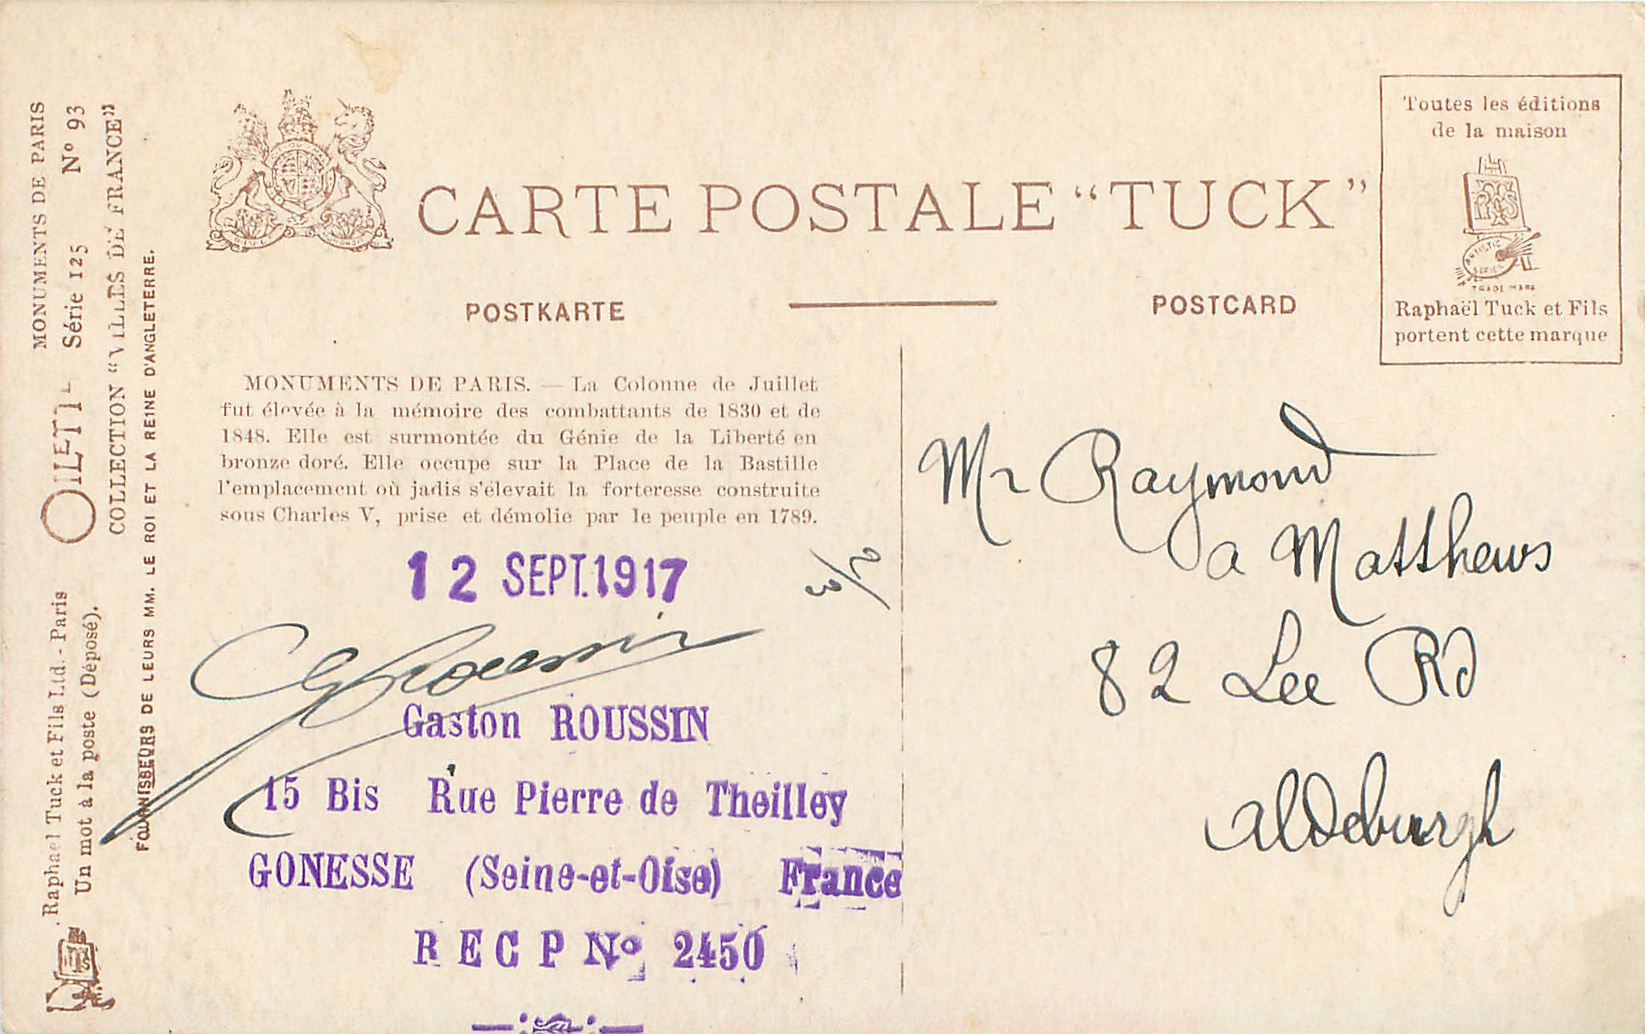 MONUMENTS DE PARIS
OILETTE Série 125 Nº 93
COLLECTION "VILLES DE FRANCE"
FOURNISSEURS DE LEURS MM. LE ROI ET LA REINE D'ANGLETERRE.
Raphael Tuck et Fils Ltd. - Paris
Un mot à la poste (Déposé).
CARTE POSTALE "TUCK"
POSTKARTE
POSTCARD
Toutes les éditions
de la maison
ARTISTIC
SERIES
TRADE MARK
Raphaël Tuck et Fils
portent cette marque
MONUMENTS DE PARIS. — La Colonne de Juillet
fut élevée à la mémoire des combattants de 1830 et de
1848. Elle est surmontée du Génie de la Liberté en
bronze doré. Elle occupe sur la Place de la Bastille
l'emplacement où jadis s'élevait la forteresse construite
sous Charles V, prise et démolie par le peuple en 1789.
12 SEPT. 1917
2/3
GRoussin
Gaston ROUSSIN
15 Bis Rue Pierre de Theilley
GONESSE (Seine-et-Oise) France
RECP Nº 2450
Mr Raymond
a Matthews
82 Lee Rd
Aldeburgh